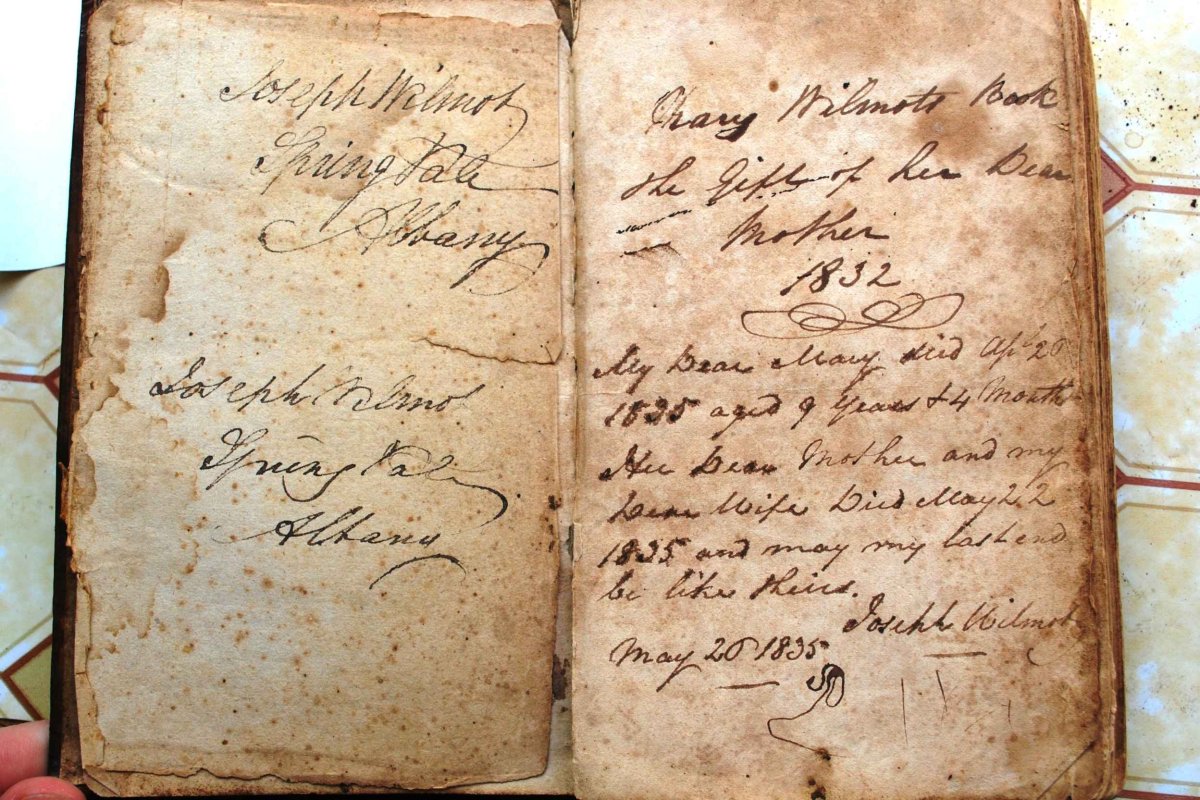 Joseph Wilmot
Spring Vale
Albany
Joseph Wilmot
Spring Vale
Albany
Mary Wilmots Book
the Gift of her Dear
Mother
1832
My Dear Mary died Apl 26
1835 aged 9 Years & 4 Months
Her Dear Mother and my
Dear Wife Died May 22
1835 and may my last end
be like theirs.
Joseph Wilmot
May 26 1835